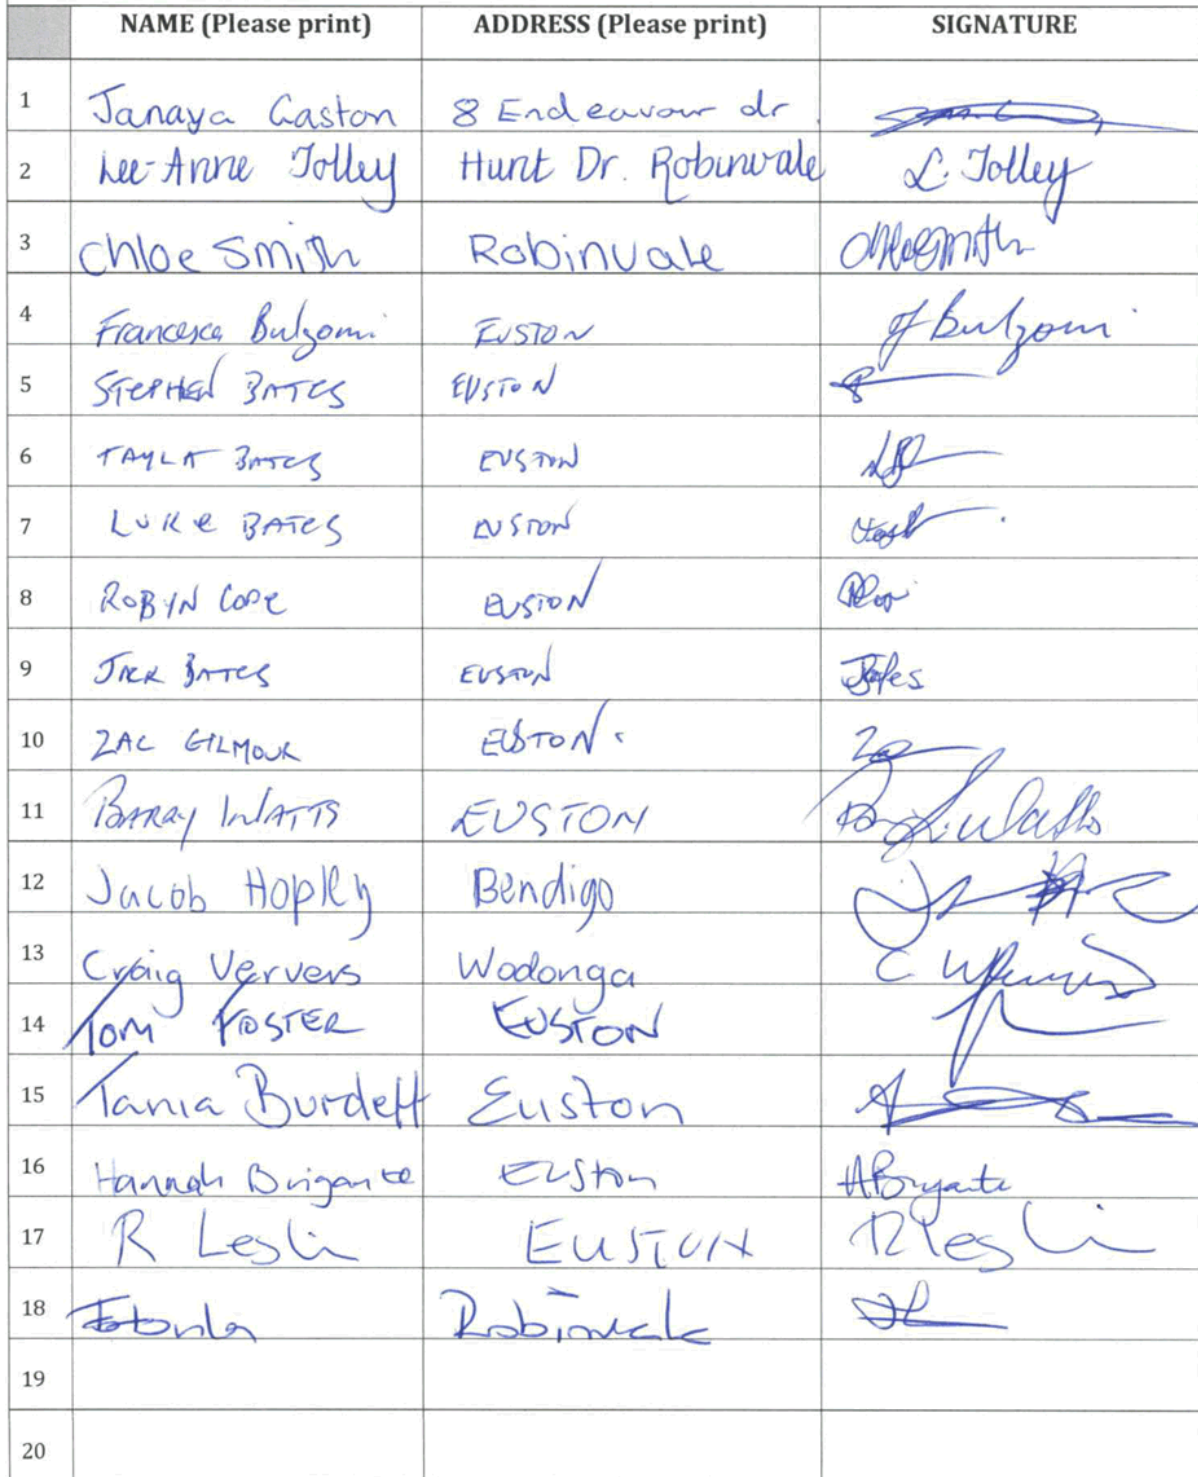 NAME (Please print) ADDRESS (Please print) SIGNATURE
1 Janaya Gaston 8 Endeavour dr.
2 Lee-Anne Tolley Hunt Dr. Robinvale L. Tolley
3 Chloe Smith Robinvale Chloe Smith
4 Francesca Bulzomi EUSTON f Bulzomi
5 STEPHEN BATES EUSTON
6 TAYLA BATES EUSTON
7 LUKe BATES EUSTON
8 ROBYN COPE EUSTON
9 JACK BATES EUSTON
10 ZAC GILMOUR EUSTON.
11 BARRY WATTS EUSTON
12 Jacob Hopley Bendigo
13 Craig Ververs Wodonga
14 Tom FOSTER EUSTON
15 Tania Burdett Euston
16 Hannah Brigante Euston
17 R Lesli EUSTON R Lesli
18 Robinvale
19
20